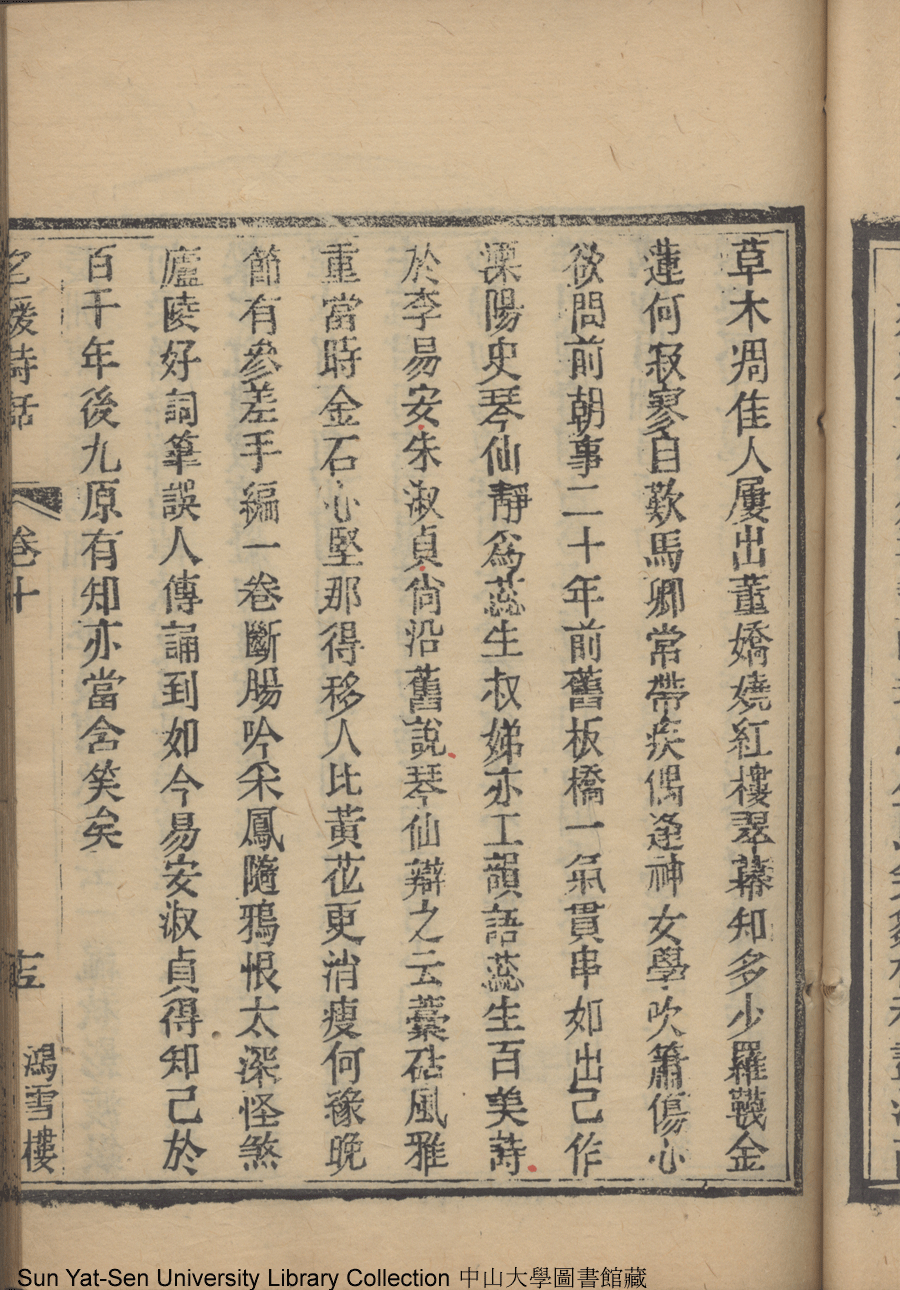 草木凋佳人屢出董嬌嬈紅樓翠幕知多少羅韈金
蓮何寂寥自歎馬卿常帶疾偶逢神女學吹簫傷心
欲問前朝事二十年前舊板橋一氣貫串如出己作
溧陽史琴仙靜爲蕊生叔娣亦工韻語蕊生百美詩
於李易安朱淑貞尙沿舊說琴仙辯之云藁砧風雅
重當時金石心堅那得移人比黃花更消瘦何豫晚
節有參差手編一卷斷腸吟釆鳳隨鴉恨太深怪煞
廬陵好詞筆誤人傳誦到如今易安淑貞得知己於
百千年後九原有知亦當含笑矣
名媛詩話
卷十
十三
鴻雪樓
Sun Yat-Sen University Library Collection 中山大學圖書館藏